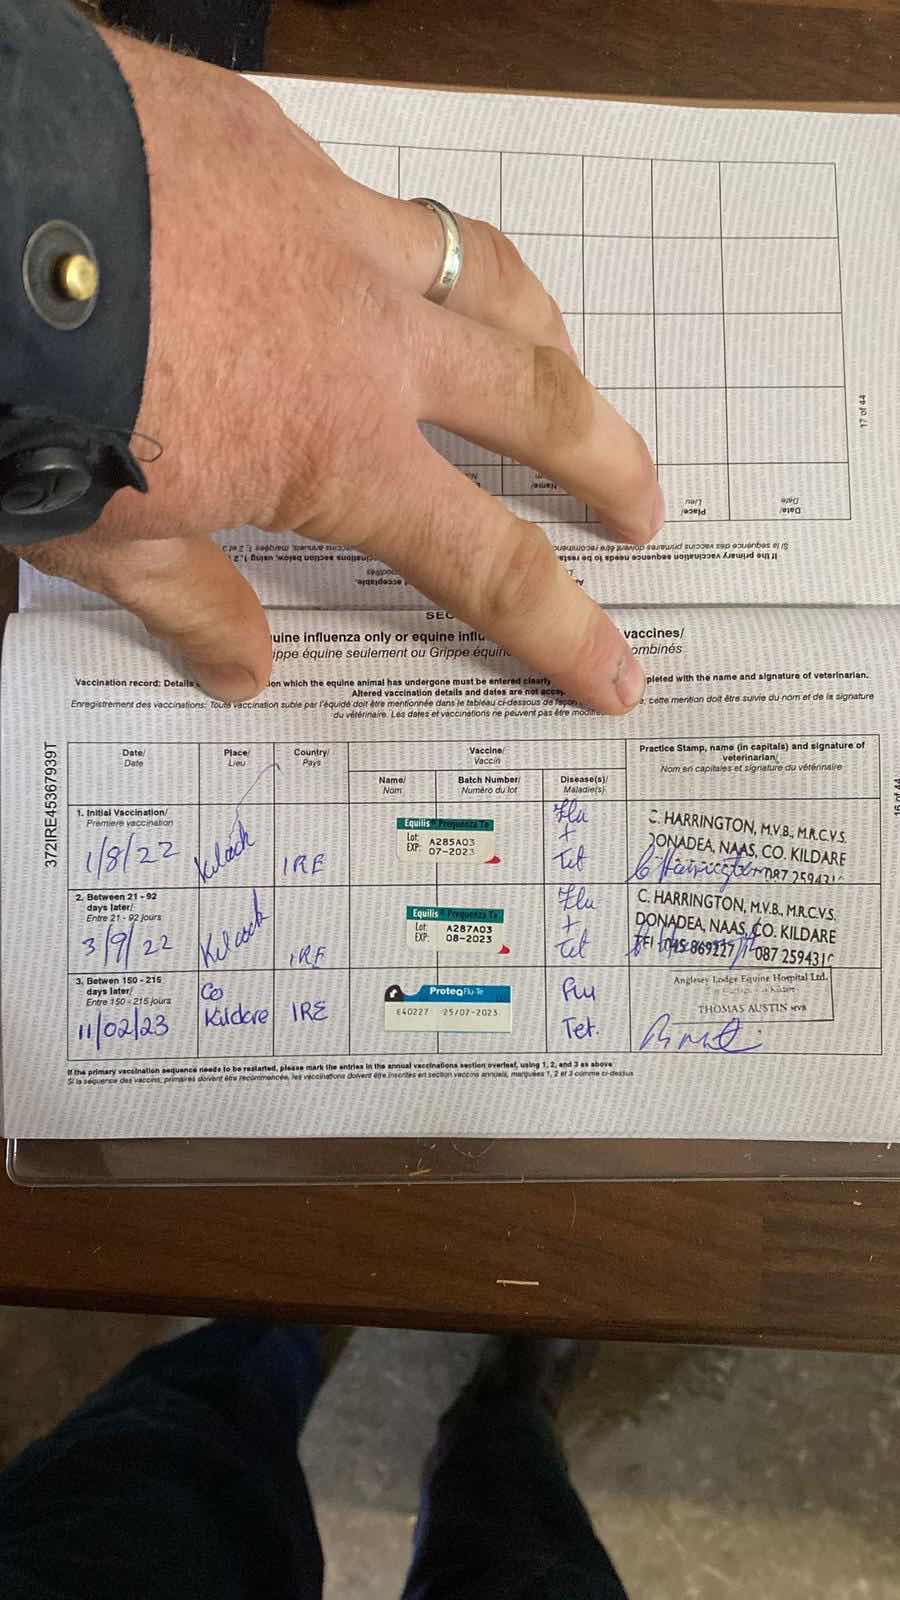 17 of 44
Date/
Date
Place/
Lieu
Name/
If the primary vaccination sequence needs to be resta
cinations section below, using 1, 2
Si la séquence des vaccins primaires doivent être recommenc
vaccins annuels, marquées 1, 2 et 3
acceptable.
SEC
quine influenza only or equine influ
vaccines/
ippe équine seulement ou Grippe équin
ombinés
Vaccination record: Details
on which the equine animal has undergone must be entered clearly
pleted with the name and signature of veterinarian.
Altered vaccination details and dates are not accep
Enregistrement des vaccinations: Toute vaccination subie par l'équidé doit être mentionnée dans le tableau ci-dessous de façon
e; cette mention doit être suivie du nom et de la signature
du vétérinaire. Les dates et vaccinations ne peuvent pas être modifié
372IRE45367939T
16 of 44
Date/
Date
Place/
Lieu
Country/
Pays
Vaccine/
Vaccin
Name/
Nom
Batch Number/
Numéro du lot
Disease(s)/
Maladie(s)
Practice Stamp, name (in capitals) and signature of
veterinarian/
Nom en capitales et signature du vétérinaire
1. Initial Vaccination/
Première vaccination
1/8/22
Kilcock
IRE
Equilis Prequenza Te
Lot: A285A03
EXP: 07-2023
Flu
+
Tet
C. HARRINGTON, M.V.B., M.R.C.V.S.
DONADEA, NAAS, CO. KILDARE
087 259431
2. Between 21 - 92
days later/
Entre 21 - 92 jours
3/9/22
Kilcock
IRE
Equilis Prequenza Te
Lot: A287A03
EXP: 08-2023
Flu
+
Tet
C. HARRINGTON, M.V.B., M.R.C.V.S.
DONADEA, NAAS, CO. KILDARE
TEL: 045 869227 / 087 259431
3. Betwen 150 - 215
days later/
Entre 150 - 215 jours
11/02/23
Co
Kildare
IRE
ProteqFlu-Te
E40227 25/07-2023
Flu
Tet.
Anglesey Lodge Equine Hospital Ltd.
THOMAS AUSTIN MVB
If the primary vaccination sequence needs to be restarted, please mark the entries in the annual vaccinations section overleaf, using 1, 2, and 3 as above
Si la séquence des vaccins, primaires doivent être recommencée, les vaccinations doivent être inscrites en section vaccins annuels, marquées 1, 2 et 3 comme ci-dessus